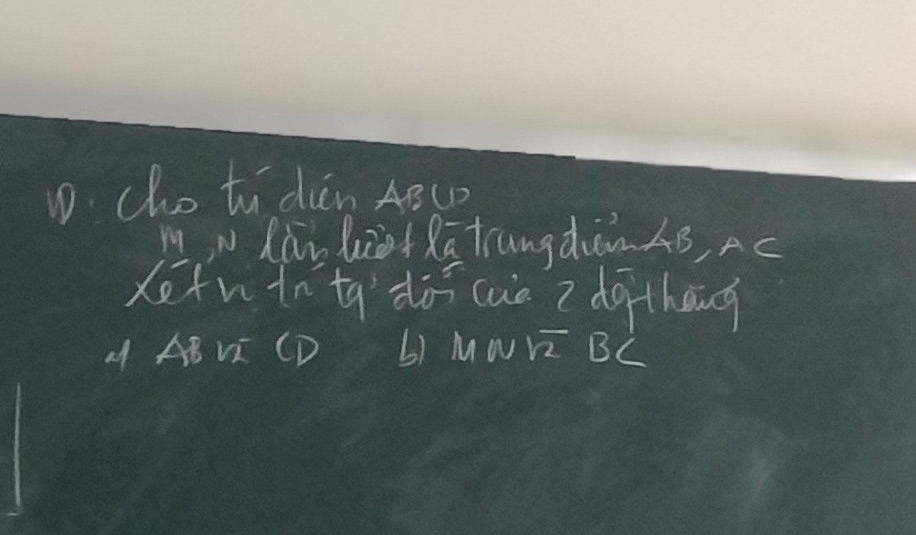 VD: Cho tứ diện ABCD
M, N lần lượt là trung điểm AB, AC
Xét vị trí tg đối của 2 đg thẳng
a) AB và CD b) MN và BC